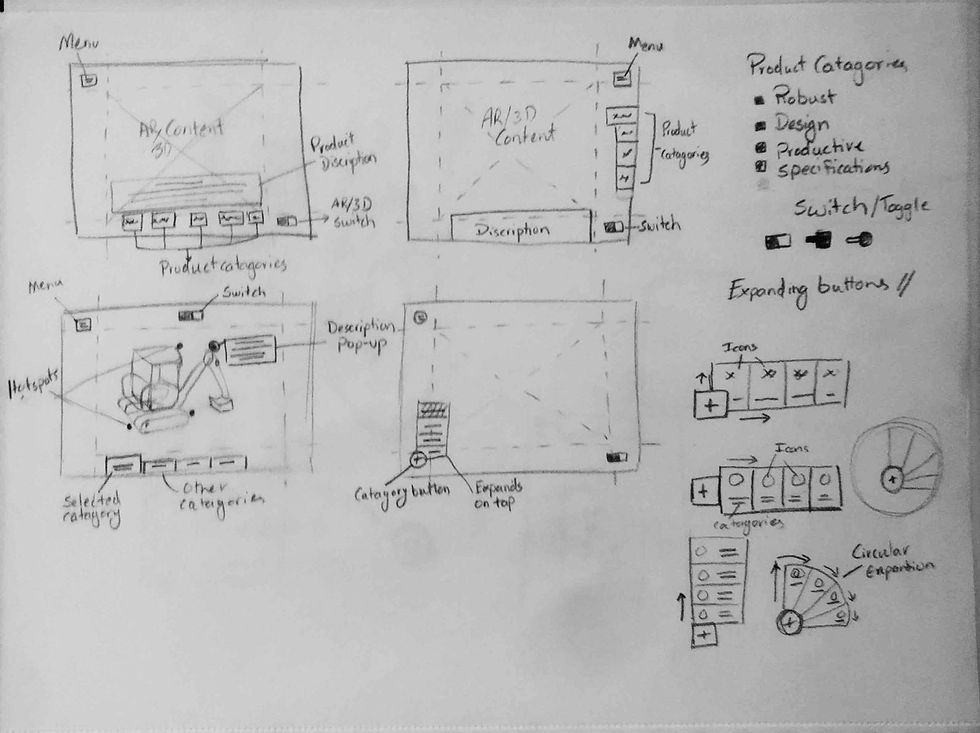 Menu
AR/Content
3D
Product
Discription
AR/3D
Switch
Product catagories
Menu
AR/3D
Content
Product
Catagories
Discription
Switch
Product Catagories
Robust
Design
Productive
Specifications
Switch/Toggle
Menu
Switch
Description
Pop-up
Hotspots
Selected
catagory
Other
catagories
Catagory button
Expands
on top
Expanding buttons //
Icons
Icons
catagories
Circular
Expantion